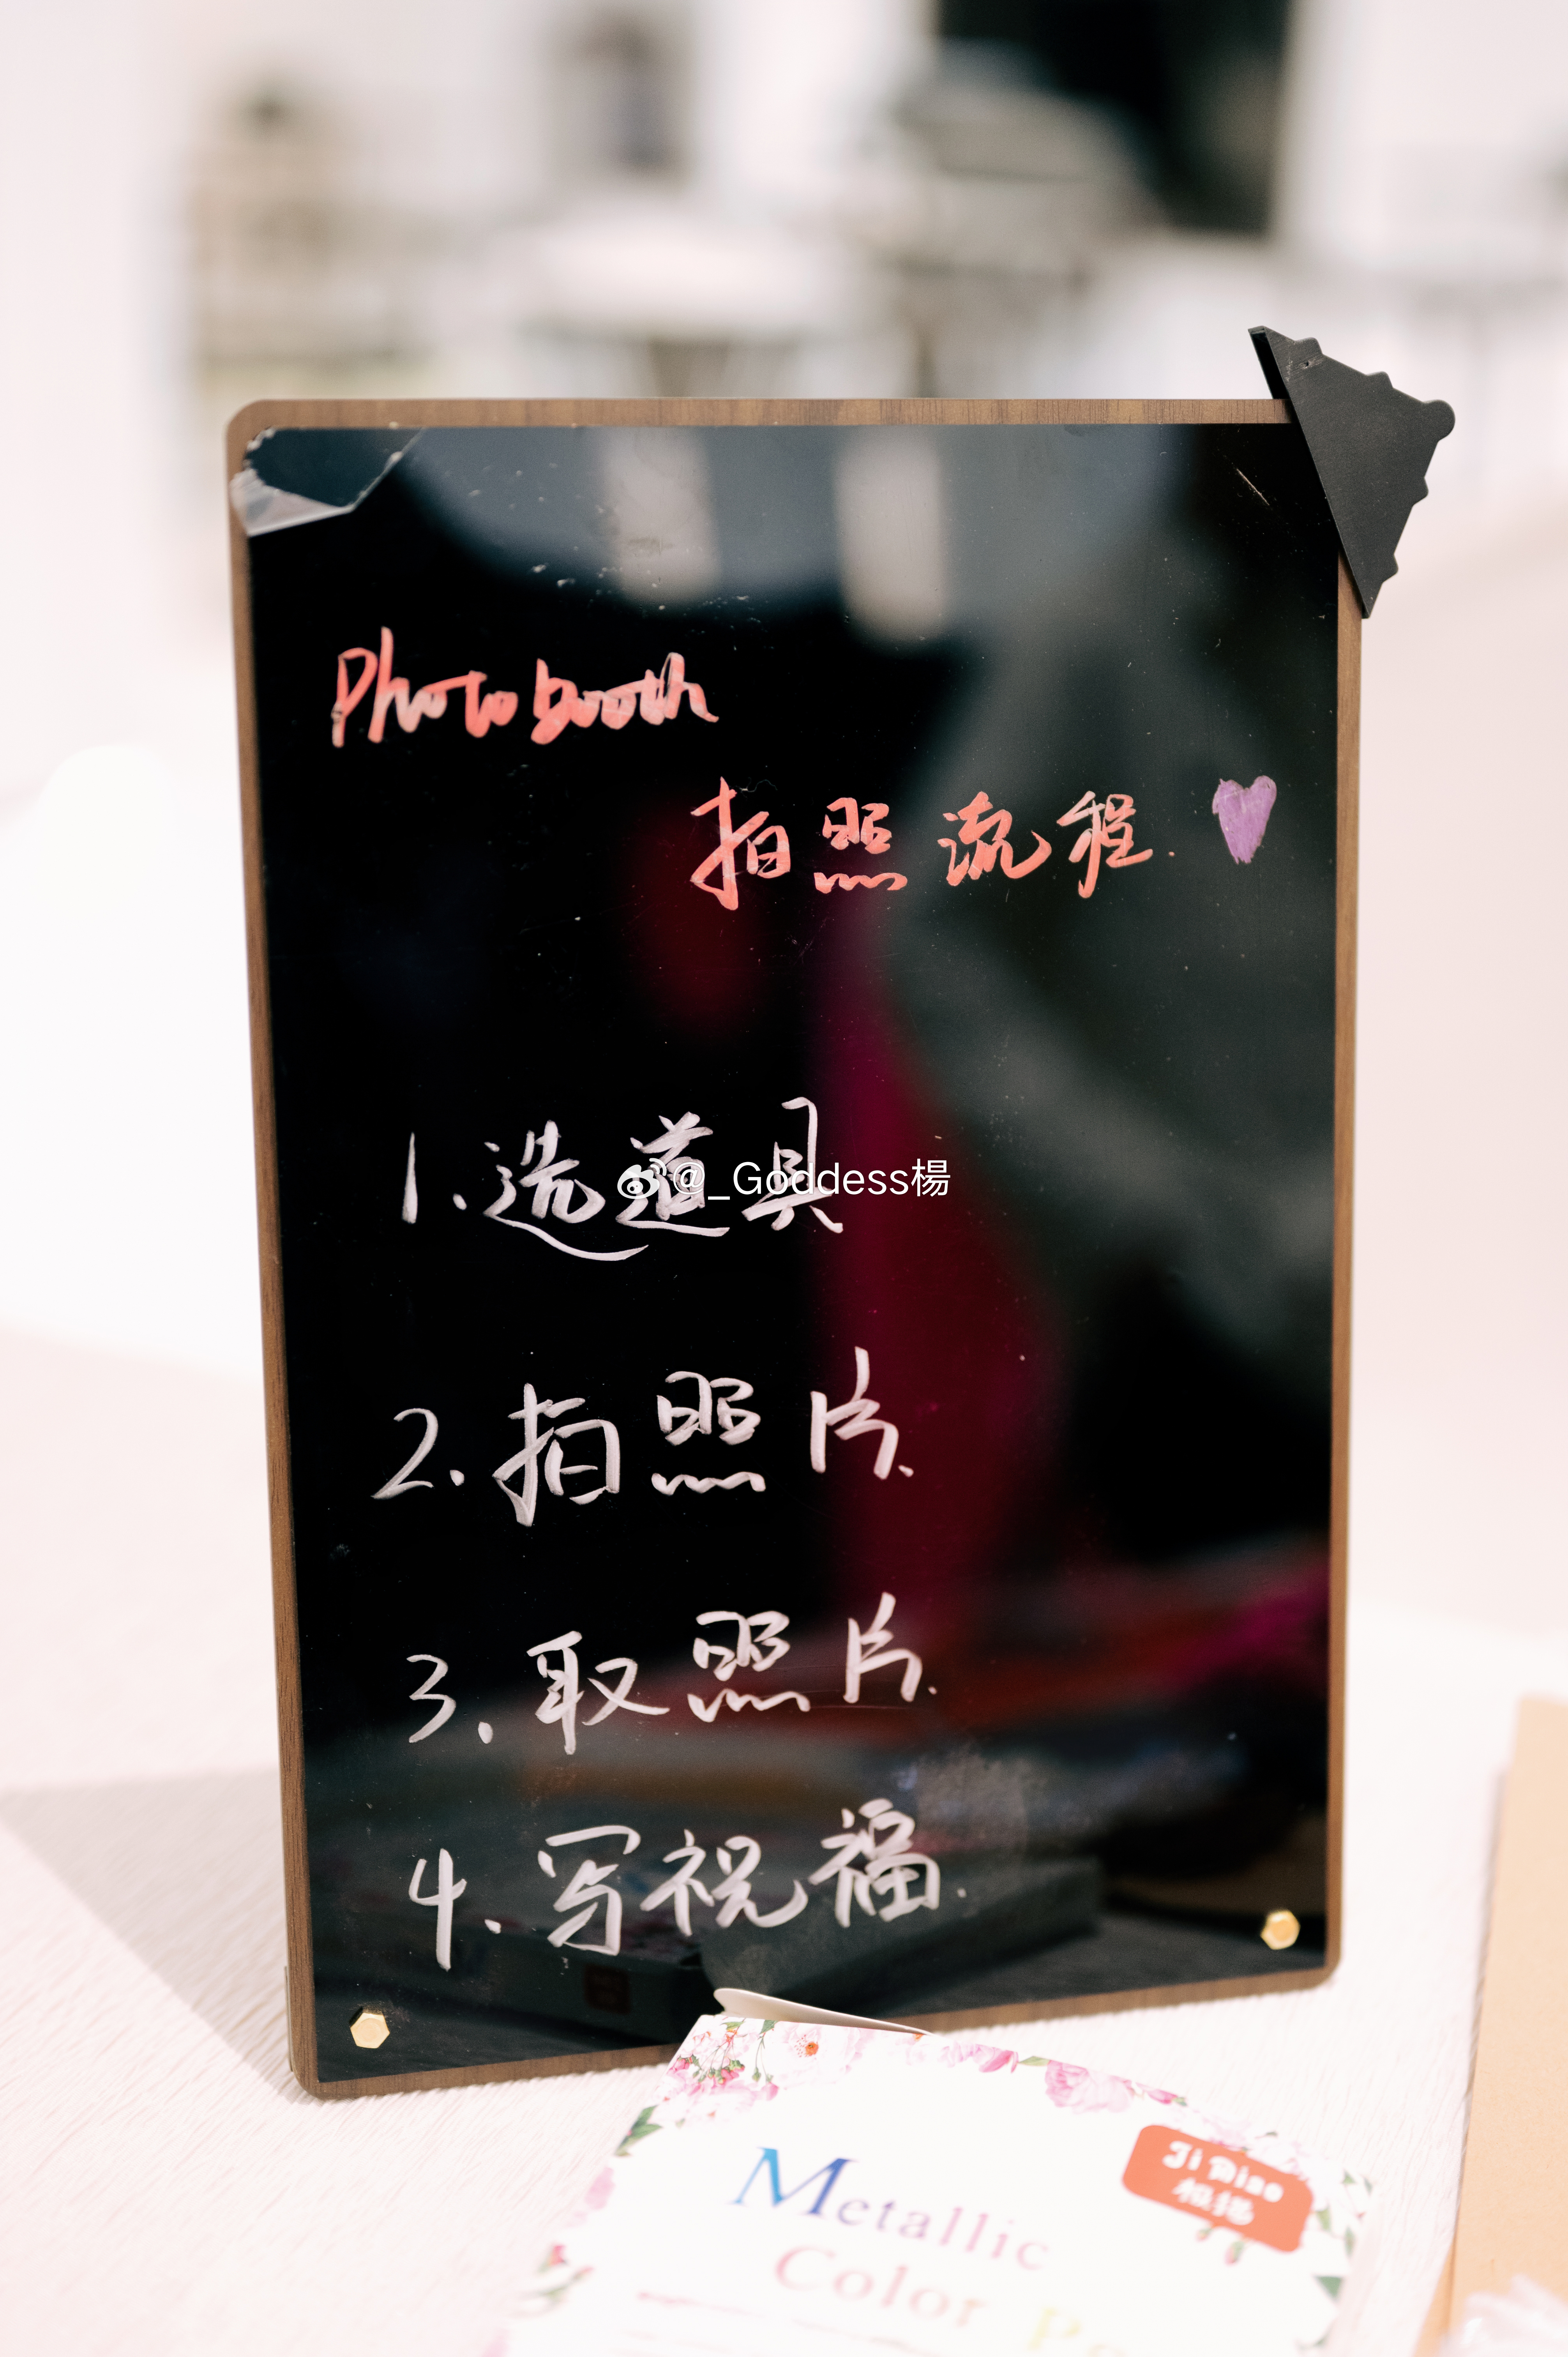 Photobooth
拍照流程.
1.选道具
@_Goddess楊
2.拍照片.
3.取照片.
4.写祝福.
Metallic
Color